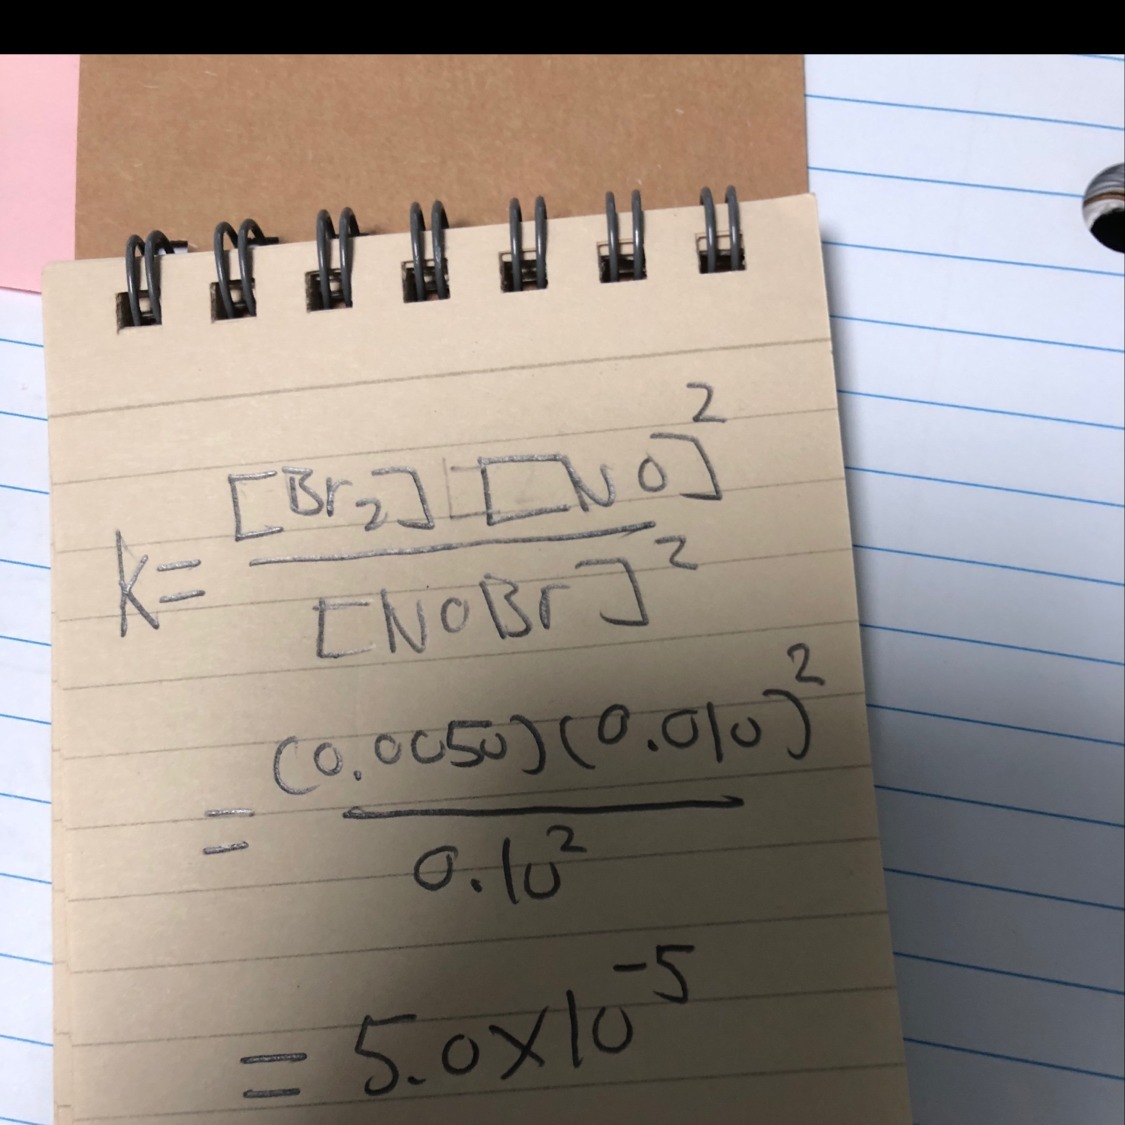 k= [Br₂] [NO]² / [NOBr]²
= (0.0050)(0.010)² / 0.10²
= 5.0x10⁻⁵